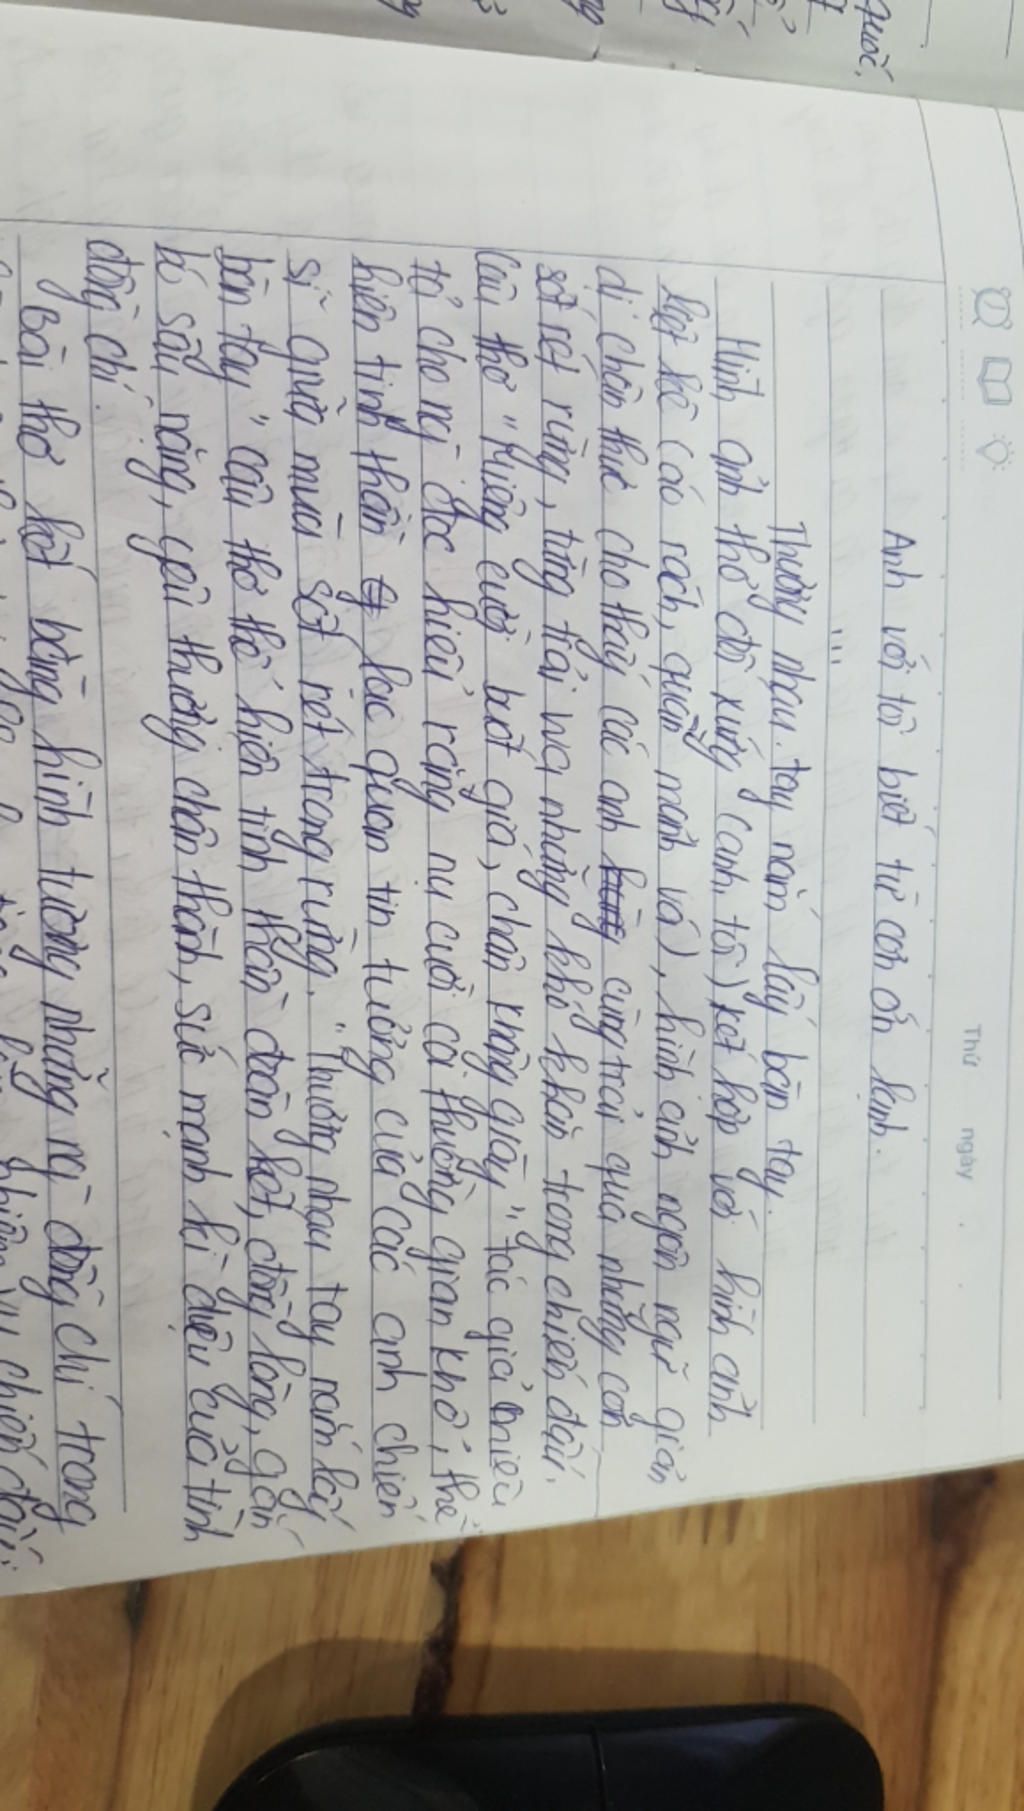 Thứ ngày
Anh với tôi biết từ cơn ớn lạnh.
...
Thương nhau tay nắm lấy bàn tay.
Hình ảnh thơ đối xứng (anh, tôi) kết hợp với hình ảnh
liệt kê (áo rách, quần mảnh vá), hình ảnh ngôn ngữ giản
dị chân thực cho thấy các anh cùng trải qua những cơn
sốt rét rừng, từng trải wa những khó khăn trong chiến đấu.
Câu thơ "Miệng cười buốt giá, chân không giày" tác giả miêu
tả cho ng đọc hiểu rằng nụ cười coi thường gian khổ, thể
hiện tinh thần lạc quan tin tưởng của các anh chiến
sĩ giữa mùa sốt rét trong rừng. "Thương nhau tay nắm lấy
bàn tay" câu thơ thể hiện tinh thần đoàn kết, đồng lòng, gắn
bó sâu nặng, yêu thương chân thành, sức mạnh kì diệu của tình
đồng chí.
Bài thơ kết bằng hình tượng những ng đồng chí trong
nhiệm vụ chiến đấu.
quốc,